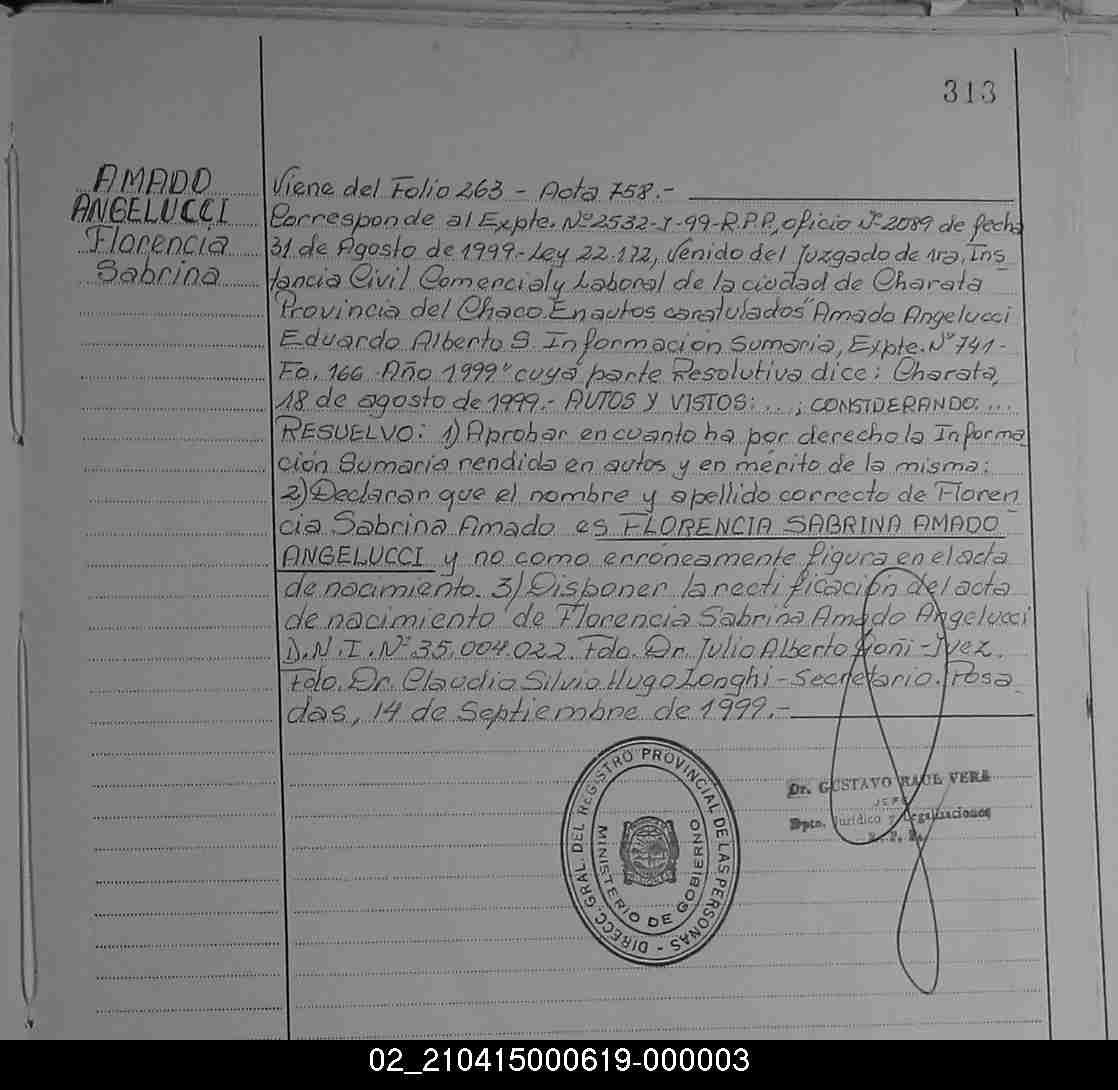 313
AMADO
ANGELUCCI
Florencia
Sabrina
Viene del Folio 263 - Acta 758.-
Corresponde al Expte. Nº 2532-Y-99-R.P.P., oficio Nº 2089 de fecha
31 de Agosto de 1999.- Ley 22.172, Venido del Juzgado de 1ra, Ins
tancia Civil Comercial y Laboral de la ciudad de Charata
Provincia del Chaco. En autos caratulados "Amado Angelucci
Eduardo Alberto S. Información Sumaria, Expte. Nº 741-
Fo. 166 Año 1999" cuya parte Resolutiva dice: Charata,
18 de agosto de 1999.- AUTOS Y VISTOS: ...; CONSIDERANDO: ...
RESUELVO: 1) Aprobar en cuanto ha por derecho la Informa
ción Sumaria rendida en autos y en mérito de la misma:
2) Declarar que el nombre y apellido correcto de Floren
cia Sabrina Amado es FLORENCIA SABRINA AMADO
ANGELUCCI y no como erróneamente figura en el acta
de nacimiento. 3) Disponer la rectificación del acta
de nacimiento de Florencia Sabrina Amado Angelucci
D.N.I. Nº 35.004.022. Fdo. Dr. Julio Alberto Goñi - Juez.
Fdo. Dr. Claudio Silvio Hugo Longhi - Secretario. Posa
das, 14 de Septiembre de 1999.-
DIRECC. GRAL. DEL REGISTRO PROVINCIAL DE LAS PERSONAS -
MINISTERIO DE GOBIERNO
Dr. GUSTAVO RAUL VERA
JEFE
Dpto. Jurídico y Legalizaciones
R. P. P.
02_210415000619-000003